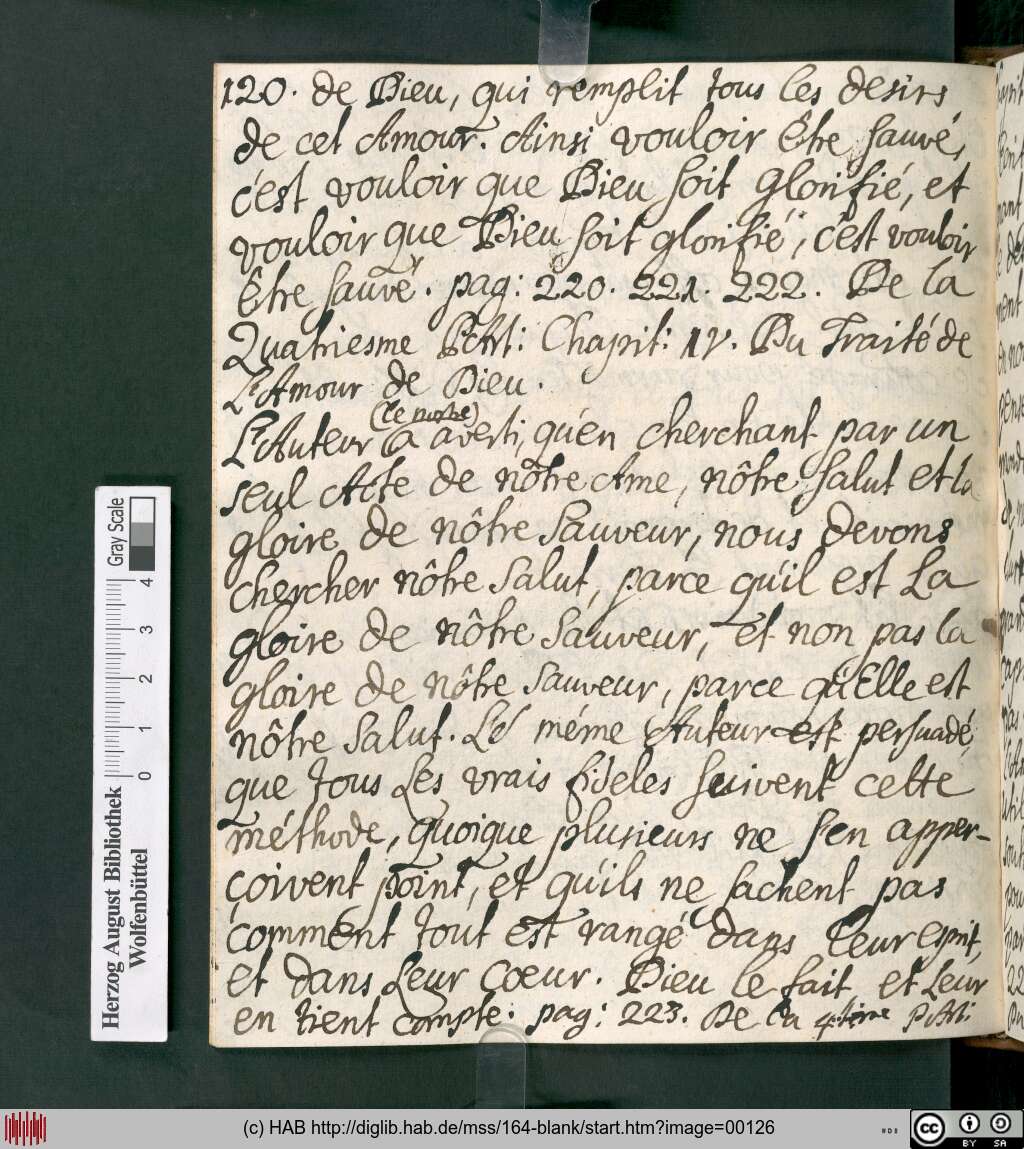 120. de Dieu, qui remplit tous les desirs
de cet Amour. Ainsi vouloir Être sauvé,
c'est vouloir que Dieu soit glorifié, et
vouloir que Dieu soit glorifié, c'est vouloir
Être sauvé. pag: 220. 221. 222. De la
Quatriesme PArt: Chapit: IV. Du Traité de
L'Amour de Dieu.
(le nostre)
L'Auteur a averti, qu'en cherchant par un
seul Acte de nôtre Ame, nôtre Salut et la
gloire de nôtre Sauveur, nous devons
chercher nôtre Salut, parce qu'il est La
gloire de nôtre Sauveur, et non pas la
gloire de nôtre Sauveur, parce qu'Elle est
nôtre Salut. Le méme Auteur est persuadé,
que tous Les vrais fideles suivent cette
méthode, quoique plusieurs ne s'en apper-
çoivent point, et qu'ils ne sachent pas
comment tout est rangé dans leur esprit,
et dans Leur Coeur. Dieu le fait et Leur
en tient compte. pag: 223. De la 4.tième PArt:
Herzog August Bibliothek
Wolfenbüttel
Gray Scale
0 1 2 3 4
(c) HAB http://diglib.hab.de/mss/164-blank/start.htm?image=00126
cc BY SA